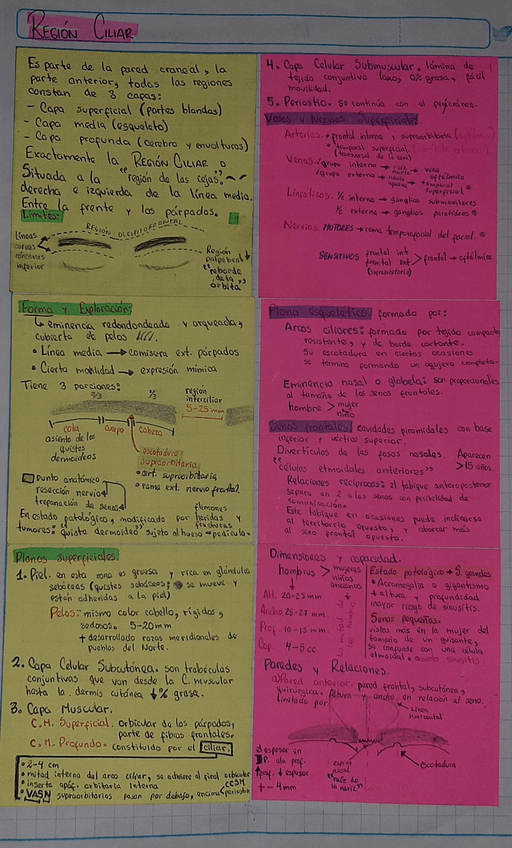 REGIÓN CILIAR
Es parte de la pared craneal, la
parte anterior, todas las regiones
constan de 3 capas:
- Capa superficial (partes blandas)
- Capa media (esqueleto)
- Capa profunda (cerebro y envolturas)
Exactamente la REGIÓN CILIAR o
Situada a la "región de las cejas".
derecha e izquierda de la línea media.
Entre la frente y los párpados.
Límites:
REGIÓN OCCIPITOFRONTAL
Líneas
curvas
cóncavas
inferior
Región
palpebral
"reborde
de la
órbita"
Forma y Exploración
eminencia redondondeada y arqueada,
cubierta de pelos
• Línea media → comisura ext. párpados
• Cierta movilidad → expresión mímica
Tiene 3 porciones:
2/3
1/3
región
interciliar
5-25 mm
cola
cuerpo
cabeza
asiento de los
quistes
dermoideos
escotadura
supraorbitaria
• art. supraorbitaria
• rama ext. nervio frontal
Punto anatómico
resección nervio
trepanación de senos
En estado patológico, modificado por
flemones
heridas y
fracturas
tumores: "quiste dermoideo" sujeto al hueso → pedículo
Planos superficiales.
1. Piel. en esta zona es gruesa y rica en glándulas
sebáceas (quistes sebáceos: se mueve y
están adheridas a la piel)
Pelos: mismo color cabello, rígidos,
sedosos. 5-20mm
+ desarrollado razas meridionales de
pueblos del Norte.
2. Capa Celular Subcutánea. son trabéculas
conjuntivas que van desde la C. muscular
hasta la dermis cutánea ↓% grasa.
3. Capa Muscular
C.M. Superficial. Orbicular de los párpados,
parte de fibras frontales.
C.M. Profundo. constituido por el ciliar.
• 2-4 cm
• mitad interna del arco ciliar, se adhiere al
• inserta apóf. orbitaria interna
• VASN supraorbitarios pasan por debajo, encima periostio
4. Capa Celular Submuscular. lámina de
tejido conjuntivo laxo, 0% grasa, fácil
movilidad.
5. Periostio. Se continúa con el pericráneo.
Vasos y Nervios Superficiales
Arterias. • frontal interna y supraorbitaria
• temporal superficial
(transversal de la cara)
Venas. grupo interno →
vena
oftálmica
grupo externo →
temporal
superficial
Linfáticos. 1/2 interna → ganglios submaxilares
1/2 externa → ganglios parotídeos
Nervios. MOTORES → rama temporofacial del facial.
SENSITIVOS
frontal int
frontal ext
> frontal → oftálmico
(supraorbitario)
Plano esquelético. formado por:
Arcos ciliares: formado por tejido compacto,
resistente, y de borde cortante.
Su escotadura en ciertas ocasiones
se termina formando un agujero completo.
Eminencia nasal o glabela: son proporcionales
al tamaño de los senos frontales.
hombre > mujer
niño
Senos frontales. cavidades piramidales con base
inferior y vértice superior.
Divertículos de las fosas nasales.
Aparecen
"células etmoidales anteriores"
>15 años.
Relaciones recíprocas: el tabique anteroposterior
separa en 2 a los senos con posibilidad de
comunicación.
Este tabique en ocasiones puede inclinarse
al territorio opuesto, y abarcar más
al seno frontal opuesto.
Dimensiones y capacidad.
hombres > mujeres
niños
ancianos
Alt. 20-25 mm
Ancho. 25-27 mm.
Prof. 10-15 mm.
Cap. 4-5 cc.
la mitad de
Estado patológico → S. grandes
• Acromegalia o gigantismo
+ altura y profundidad
mayor riesgo de sinusitis.
Senos pequeños.
vistas más en la mujer del
tamaño de un guisante,
se confunde con una célula
etmoidal.
Paredes y Relaciones.
a) Pared anterior. pared frontal, subcutánea,
quirúrgica. Altura y ancho en relación al seno.
Limitado por
Línea
horizontal
Escotadura
espina
nasal
"raíz de
la nariz"
el espesor en
P. ala prof.
↑prof. ↓ espesor
+- 4mm